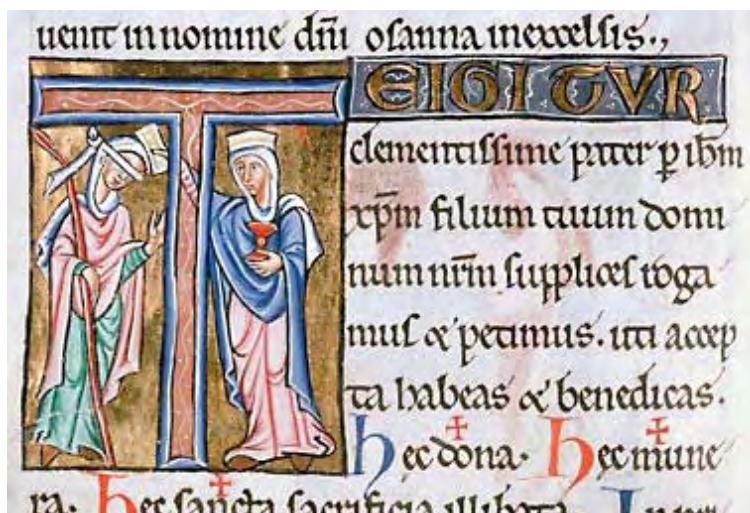 uenit in nomine dn̄i osanna inexcelsis.,
TEIGITVR
clementissime pater p̱ ih̄m
xp̄m filium tuum domi
num nr̄m supplices roga
mus & petimus. uti accep
ta habeas & benedicas.
hęc dona. hęc mune
ra. hęc sancta sacrificia illibata. Inpri